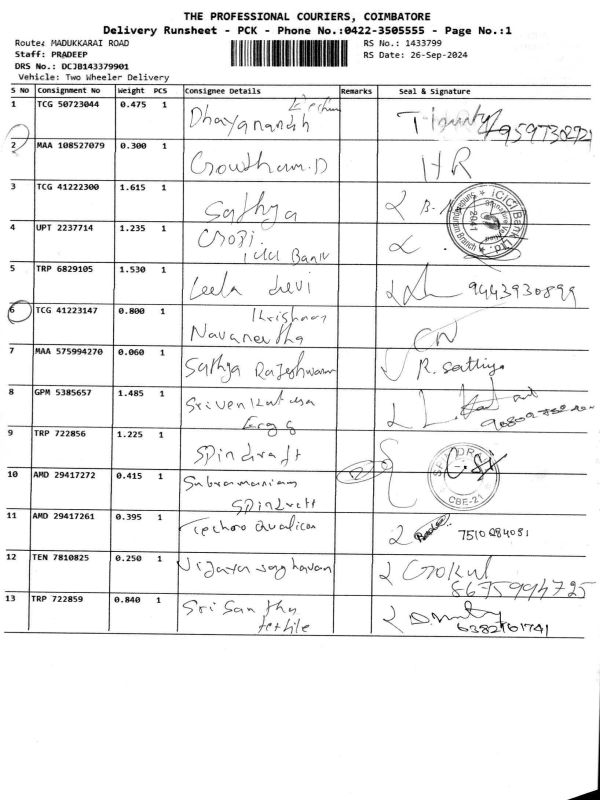 THE PROFESSIONAL COURIERS, COIMBATORE
Delivery Runsheet - PCK - Phone No.:0422-3505555 - Page No.:1
Route: MADUKKARAI ROAD RS No.: 1433799
Staff: PRADEEP RS Date: 26-Sep-2024
DRS No.: DCJB143379901
Vehicle: Two Wheeler Delivery
S No Consignment No Weight PCS Consignee Details Remarks Seal & Signature
1 TCG 50723044 0.475 1 Dhayanandh
2 MAA 108527079 0.300 1 Gowtham.D HR
3 TCG 41222300 1.615 1 Sathya
4 UPT 2237714 1.235 1 Gopi.
ICICI Bank
ICICI Bank Ltd.
5 TRP 6829105 1.530 1 Leela devi 9443930899
6 TCG 41223147 0.800 1 Krishnan
Navaneetha
7 MAA 575994270 0.060 1 Sathya Rajeshwari R. Sathiya
8 GPM 5385657 1.485 1 Sri Venkatesa
Engg
9 TRP 722856 1.225 1 Spindraft
CBE-21
10 AMD 29417272 0.415 1 Subramaniam
11 AMD 29417261 0.395 1 7510284081
12 TEN 7810825 0.250 1 Vijaya raghavan Gokul
8675994725
13 TRP 722859 0.840 1 Sri Santhu
textile
6382761741